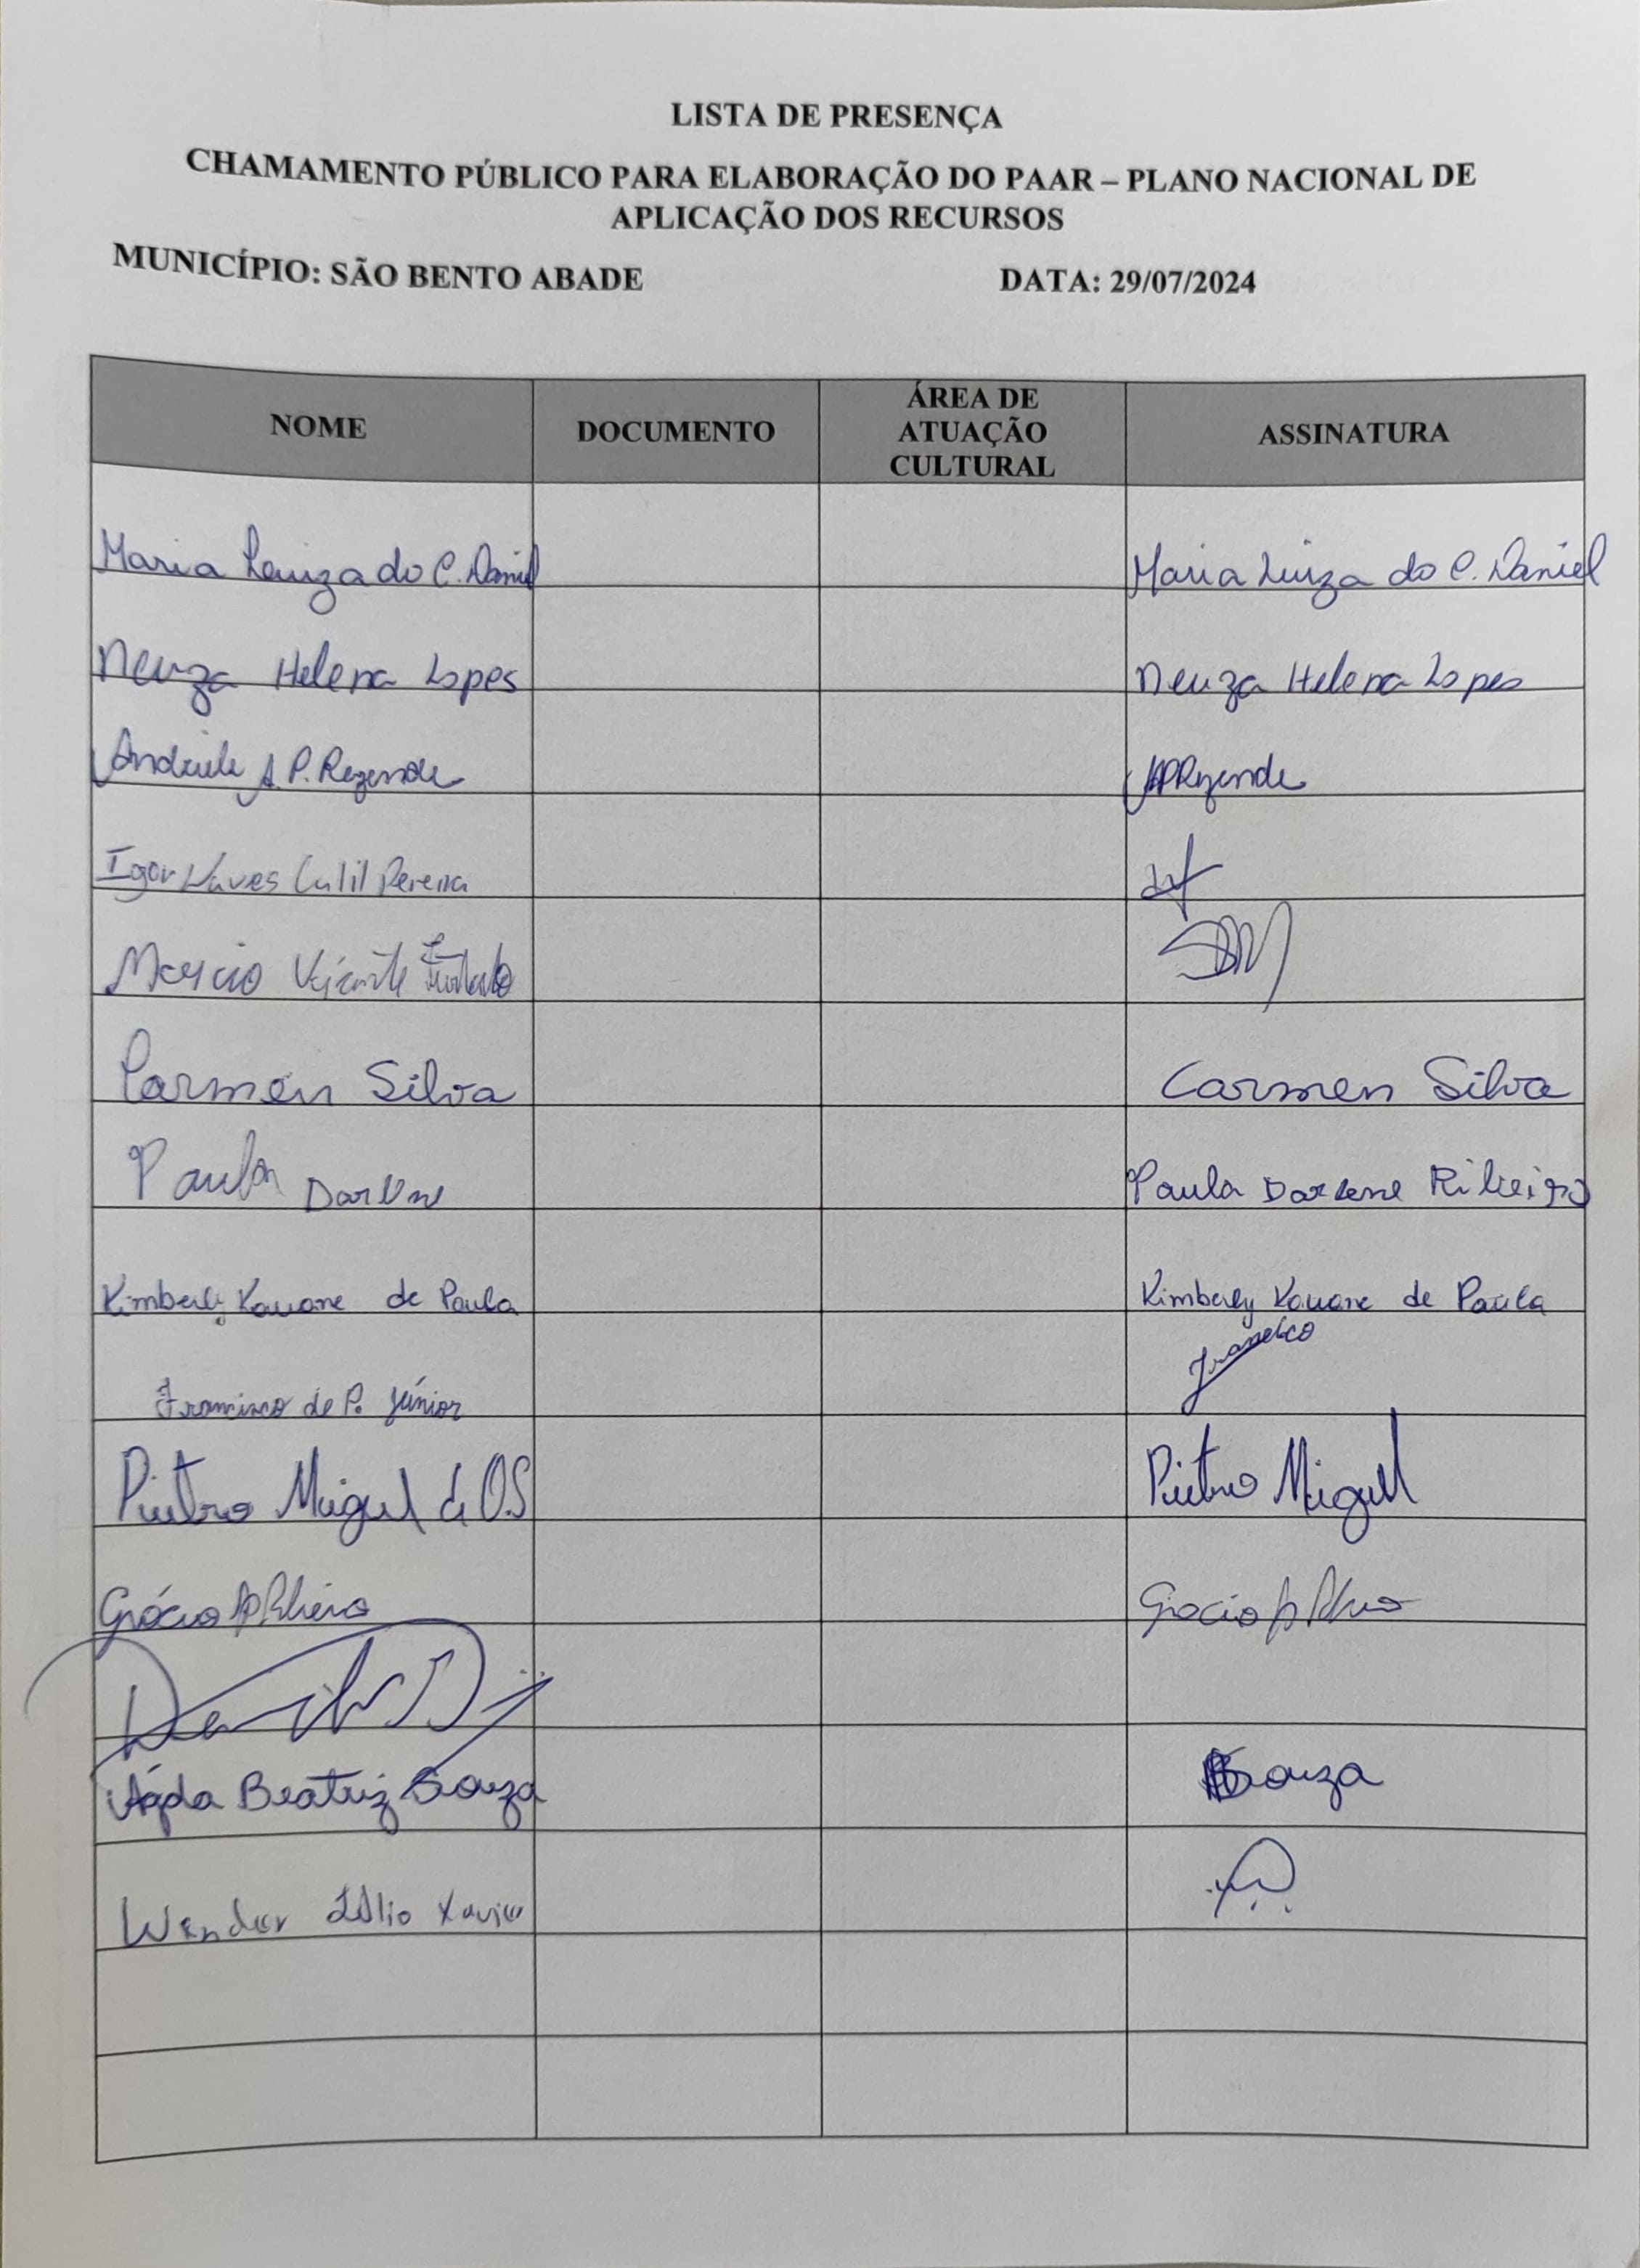 LISTA DE PRESENÇA
CHAMAMENTO PÚBLICO PARA ELABORAÇÃO DO PAAR – PLANO NACIONAL DE
APLICAÇÃO DOS RECURSOS
MUNICÍPIO: SÃO BENTO ABADE DATA: 29/07/2024
NOME DOCUMENTO ÁREA DE ATUAÇÃO CULTURAL ASSINATURA
Maria Luiza do C. Daniel Maria Luiza do C. Daniel
Neuza Helena Lopes Neuza Helena Lopes
Andriele A. P. Rezende APRezende
Igor Naves Calil Pereira
Marcio Vicente
Carmen Silva Carmen Silva
Paula Darlene Paula Darlene Ribeiro
Kimberly Kauane de Paula Kimberly Kauane de Paula
Francisco de P. Júnior Francisco
Pietro Miguel de O.S Pietro Miguel
Grácia Ap Ribeiro Gracia Ap
Beatriz Souza Souza
Xavier